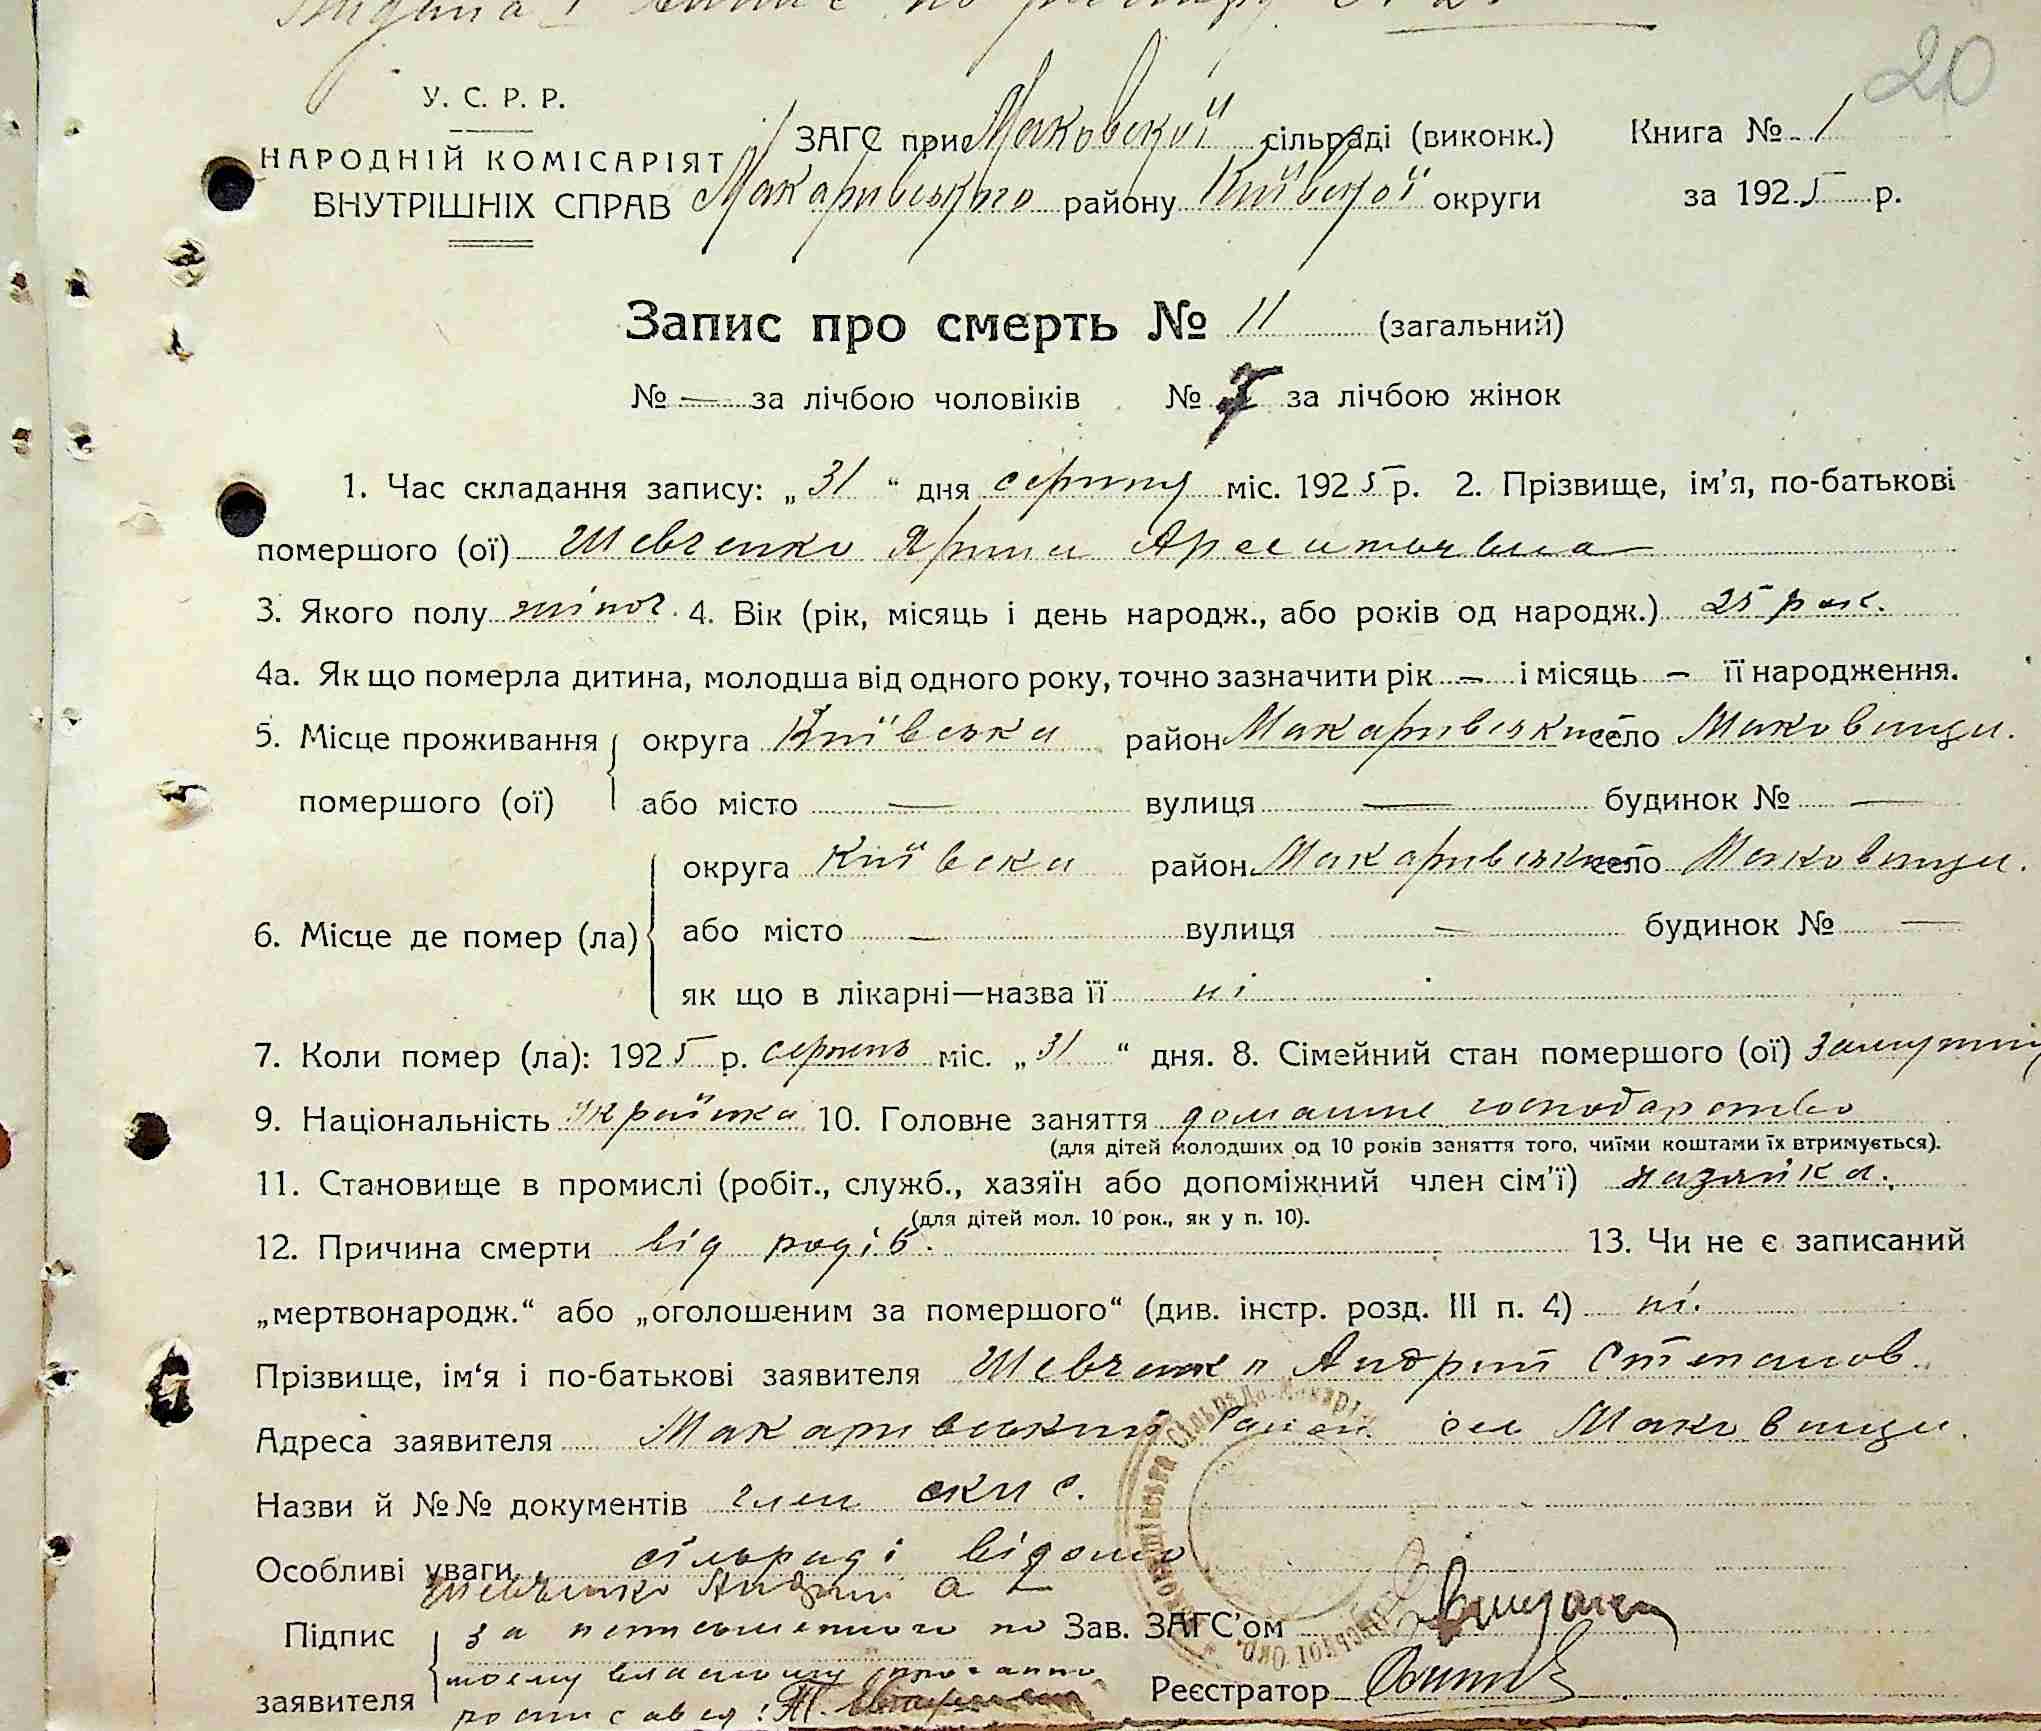 20
У. С. Р. Р.
НАРОДНІЙ КОМІСАРІЯТ
ВНУТРІШНІХ СПРАВ
ЗАГС при Маковської сільраді (виконк.) Книга № 1
Макарівського району Київської округи за 1925 р.
Запис про смерть № 11 (загальний)
№ — за лічбою чоловіків № 7 за лічбою жінок
1. Час складання запису: „31“ дня серпня міс. 1925 р. 2. Прізвище, ім’я, по-батькові
помершого (ої) Шевченко Ярина
3. Якого полу жіноч. 4. Вік (рік, місяць і день народж., або років од народж.) 25 рок.
4а. Як що померла дитина, молодша від одного року, точно зазначити рік — і місяць — її народження.
5. Місце проживання округа Київська район Макарівський село Маковищи.
помершого (ої) або місто — вулиця — будинок № —
округа Київська район Макарівський село Маковищи.
6. Місце де помер (ла) або місто — вулиця — будинок № —
як що в лікарні—назва її ні
7. Коли помер (ла): 1925 р. серпень міс. „31“ дня. 8. Сімейний стан помершого (ої)
9. Національність 10. Головне заняття домашне господарство
(для дітей молодших од 10 років заняття того, чиїми коштами їх втримується).
11. Становище в промислі (робіт., служб., хазяїн або допоміжний член сім’ї) хазяйка.
(для дітей мол. 10 рок., як у п. 10).
12. Причина смерти від родів. 13. Чи не є записаний
„мертвонародж.“ або „оголошеним за помершого“ (див. інстр. розд. III п. 4) ні.
Прізвище, ім‘я і по-батькові заявителя Шевченко Андрій Степанов.
Адреса заявителя Макарівський район село Маковищи.
Назви й №№ документів член
Особливі уваги сільраді відомо
Шевченко Андрій а
Підпис за неписьменного по Зав. ЗАГС’ом
моєму власному проханню
заявителя росписався: Реєстратор